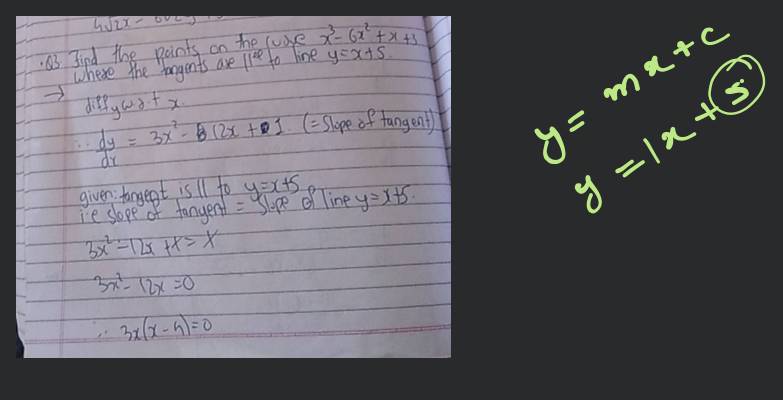 Q3 Find the points on the curve x³-6x²+x+3
where the tangents are ||el to line y=x+5.
→
diff y w.r.t x.
∴ dy/dx = 3x² - 12x + 1. (= Slope of tangent)
given: tangent is || to y=x+5
i.e slope of tangent = Slope of line y=x+5.
3x²-12x+1=1
3x²-12x=0
∴ 3x(x-4)=0
y = mx+c
y = 1x+5